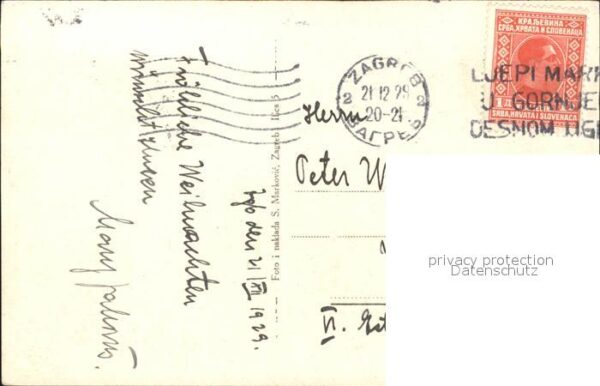 Fröhliche Weihnachten
wünscht Ihnen
Zgb den 21/XII 1929.
Foto i naklada S. Marković, Zagreb, Ilica 5
ZAGREB
2 21 12 29 2
20-21
ЗАГРЕБ
КРАЉЕВИНА
СРБА, ХРВАТА И СЛОВЕНАЦА
1
SRBA, HRVATA I SLOVENACA
LJEPI MARK
U GORNJE
DESNOM UG
Herrn
Peter W
VI.
privacy protection
Datenschutz